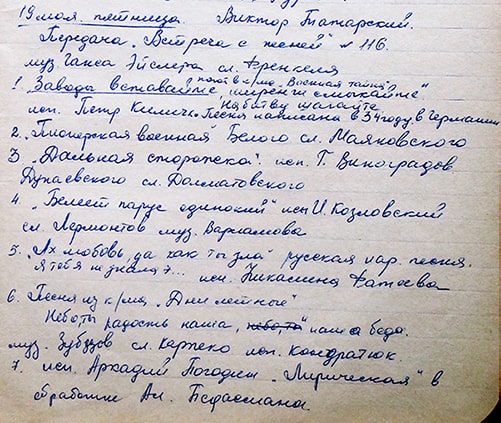 19 мая. пятница. Виктор Татарский.
Передача „Встреча с песней" № 116.
муз Ганса Эйслера сл. Френкеля
поют в к/м „Военная тайна"
1. „Заводы вставайте шеренги смыкайте"
На битву шагайте
исп. Петр Киричек Песня написана в 34 году в Германии
2. „Пионерская военная" Белого сл. Маяковского
3 „Дальная сторожка". исп. Г. Виноградов
Дунаевского сл. Долматовского
4 „Белеет парус одинокий" исп И. Козловский
сл. Лермонтов муз. Варламова
5. „Ах любовь, да как ты зла" русская нар. песня.
Я тебя не знала э... исп. Фатеева
6. Песня из к/м. „Дни летные"
Небо, ты радость наша, наша беда.
муз. Зубцов сл. Карпеко исп. Кондратюк.
7. исп. Аркадий Погодин „Лирическая" в
обработке Ал.